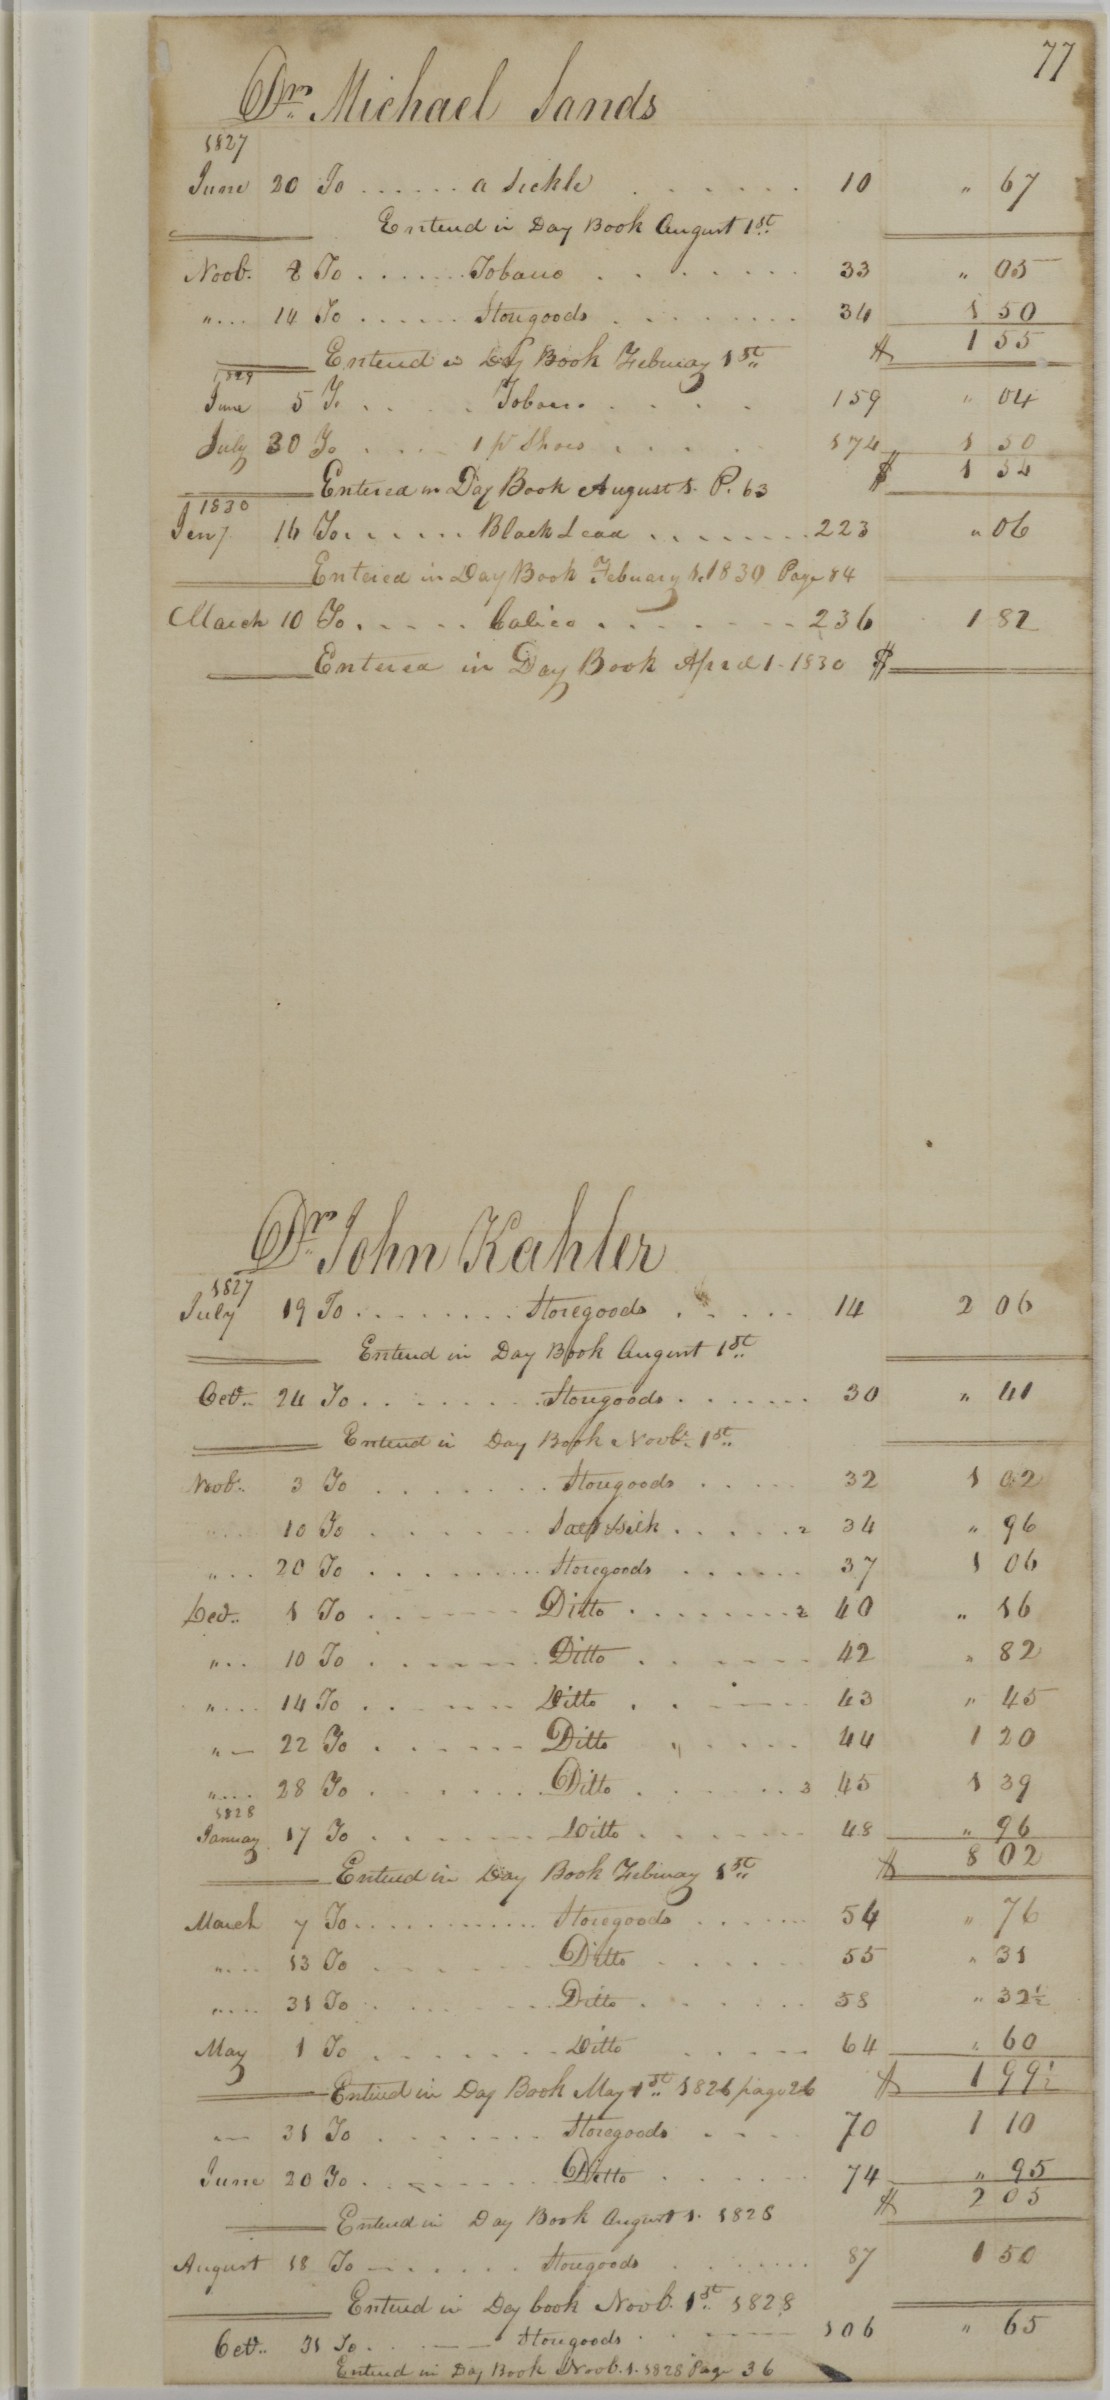 77
Dr. Michael Sands
1827
June 20 To ...... a Sickle ....... 10 " 67
Entend in Day Book August 1st
Novb. 8 To ...... Tobacco ....... 33 " 05
" ... 14 To ...... Storegoods ....... 34 1 50
Entend in Day Book Febuary 1st $ 1 55
1829
June 5 To ..... Tobacco ..... 159 " 04
July 30 To .... 1 pr Shoes .... 174 1 50
Entered in Day Book August 1. P. 63 $ 1 54
1830
Jany 16 To ...... Black Lead ........ 223 " 06
Entered in Day Book Febuary 1. 1830 Page 84
March 10 To ..... Calico ........ 236 1 82
Entered in Day Book April 1 - 1830 $
Dr. John Kahler
1827
July 19 To ........ Storegoods ..... 14 2 06
Entend in Day Book August 1st
Oct.. 24 To ........ Storegoods ....... 30 " 41
Entend in Day Book Novbr. 1st
Novb. 3 To ....... Storegoods ..... 32 1 02
" ... 10 To ...... Silk ..... 2 34 " 96
" ... 20 To ........ Storegoods ...... 37 1 06
Decr.. 1 To ...... Ditto ........ 2 40 " 16
" ... 10 To ...... Ditto ...... 42 " 82
" ... 14 To ...... Ditto ..... 43 " 45
" — 22 To ...... Ditto " .... 44 1 20
" .... 28 To ....... Ditto ...... 3 45 1 39
1828
January 17 To ...... Ditto ...... 48 " 96
Entend in Day Book Febuary 1st $ 8 02
March 7 To ........... Storegoods ...... 54 " 76
" .... 13 To ....... Ditto ...... 55 " 31
" .... 31 To ....... Ditto ...... 58 " 32½
May 1 To ....... Ditto ..... 64 " 60
Entered in Day Book May 1st 1828 page 26 $ 1 99½
" — 31 To ....... Storegoods .... 70 1 10
June 20 To ...... Ditto ...... 74 " 95
Entend in Day Book August 1. 1828 $ 2 05
August 18 To ...... Storegoods ....... 87 1 50
Entend in Day book Novb. 1st 1828
Oct.. 31 To .. —— Storegoods . ---- 106 " 65
Entend in Day Book Novb. 1. 1828 Page 36